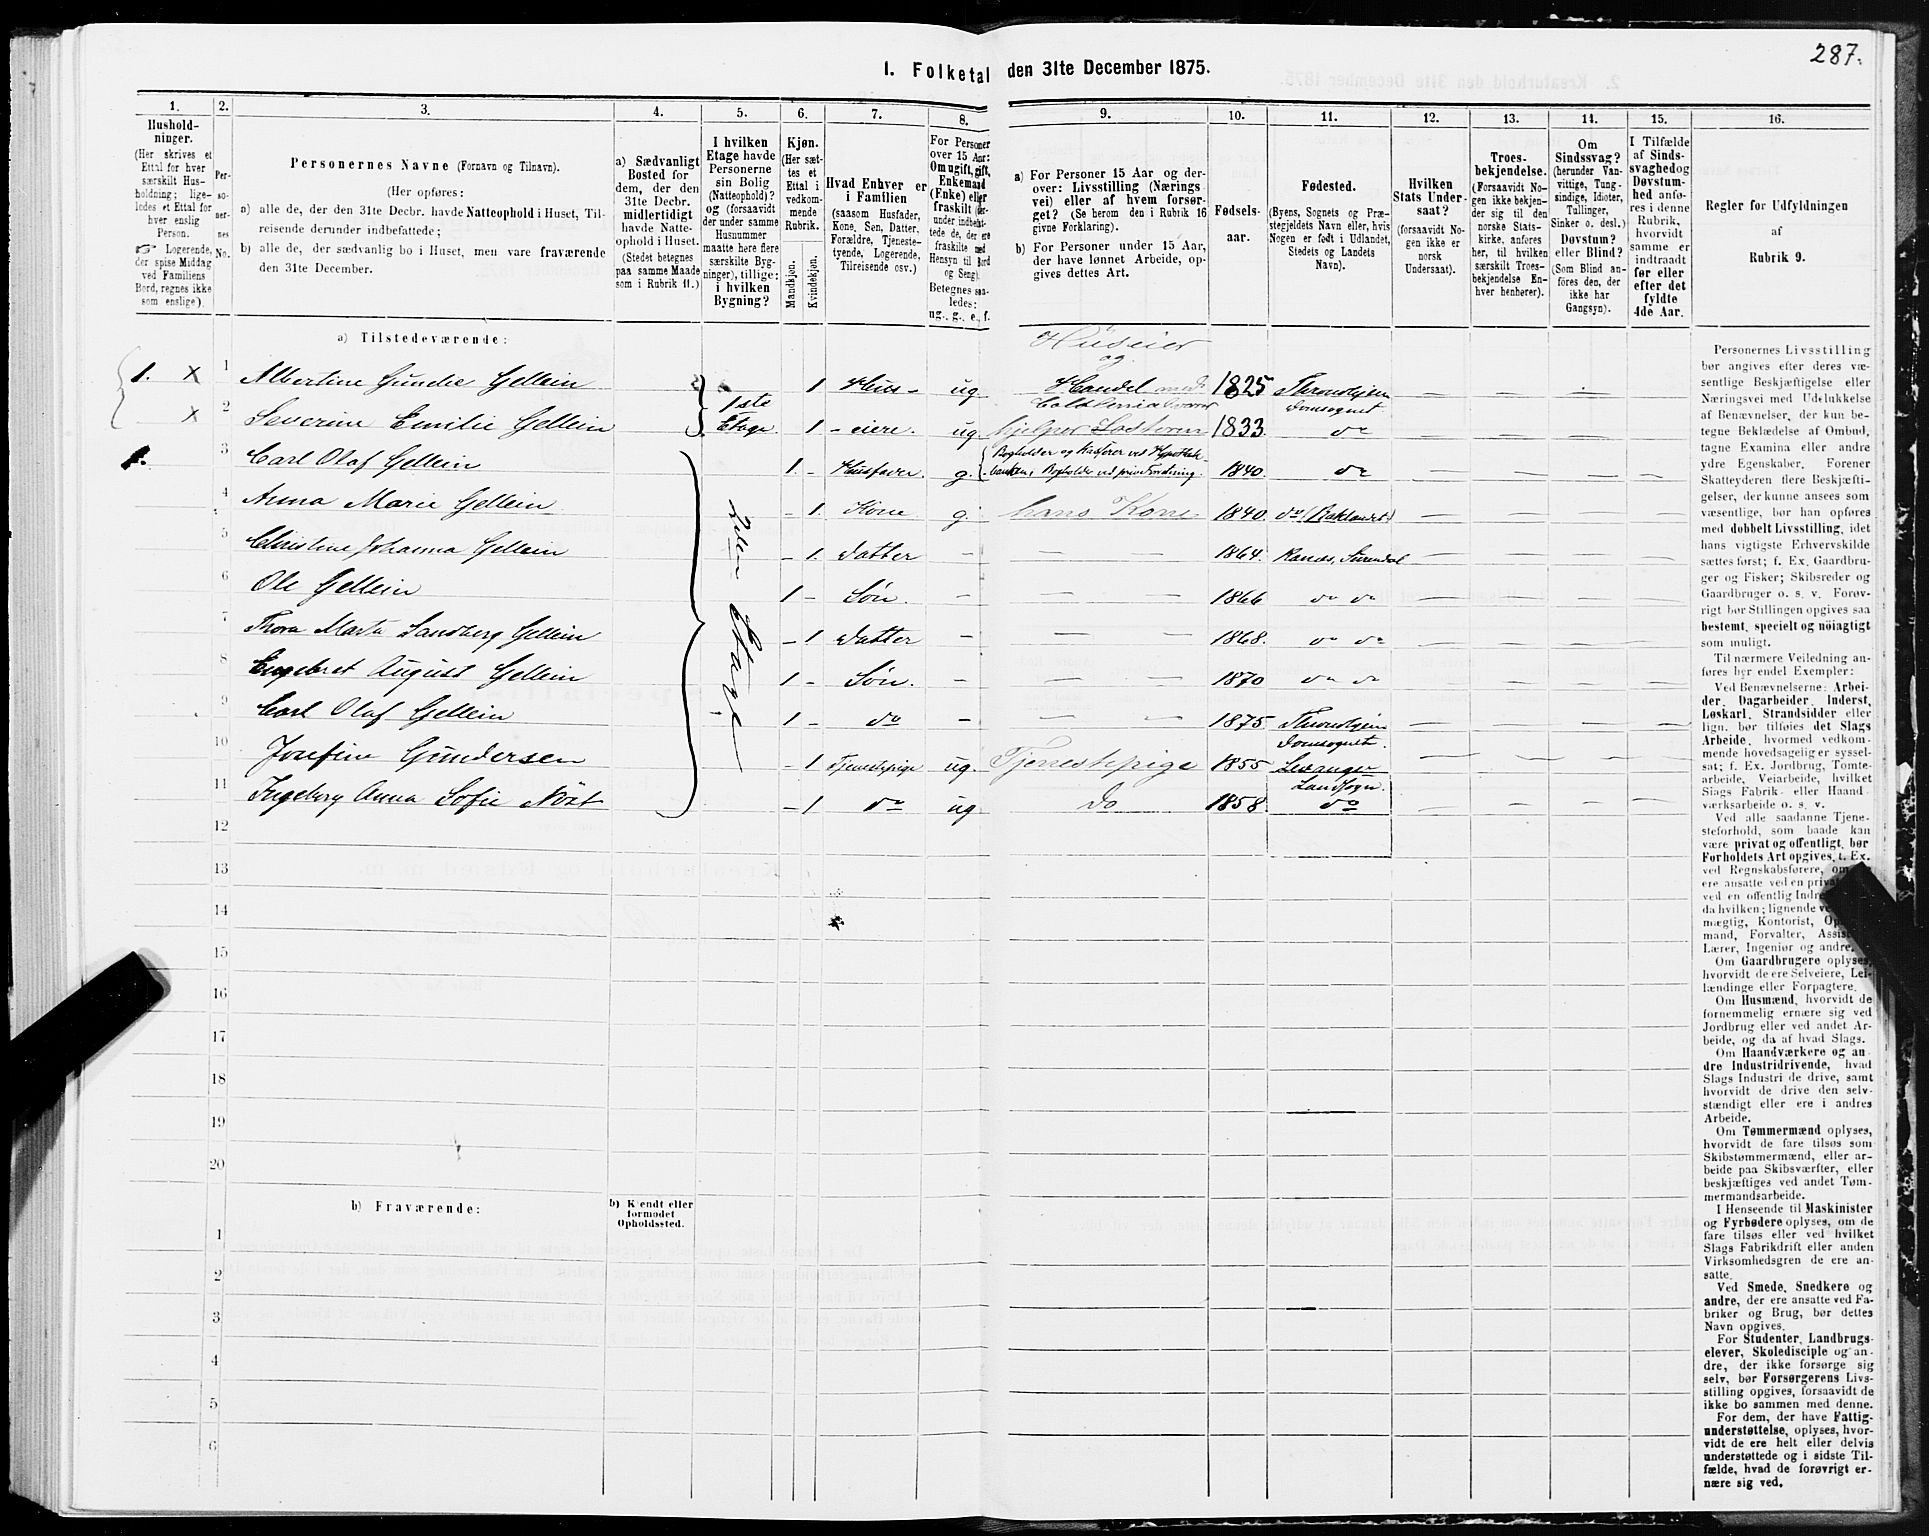 287.
I. Folketal den 31te December 1875.
1. 2. 3. 4. 5. 6. 7. 8. 9. 10. 11. 12. 13. 14. 15. 16.
Hushold-
ninger.
(Her skrives et
Ettal for hver
særskilt Hus-
holdning; lige-
ledes et Ettal for
hver enslig
Person.
☞ Logerende,
der spise Middag
ved Familiens
Bord, regnes ikke
som enslige).
Per-
so-
ner-
nes
No.
Personernes Navne (Fornavn og Tilnavn).
(Her opføres:
a) alle de, der den 31te Decbr. havde Natteophold i Huset, Til-
reisende derunder indbefattede;
b) alle de, der sædvanlig bo i Huset, men vare fraværende
den 31te December.
a) Sædvanligt
Bosted for
dem, der den
31te Decbr.
midlertidigt
havde Natte-
ophold i Huset.
(Stedet betegnes
paa samme Maade
som i Rubrik 11.)
I hvilken
Etage havde
Personerne
sin Bolig
(Natteophold)?
og (forsaavidt
der under samme
Husnummer
maatte høre flere
særskilte Byg-
ninger), tillige:
i hvilken
Bygning?
Kjøn.
(Her sæt-
tes et
Ettal i
vedkom-
mende
Rubrik.
Mandkjøn.
Kvindekjøn.
Hvad Enhver er
i Familien
(saasom Husfader,
Kone, Søn, Datter,
Forældre, Tjeneste-
tyende, Logerende,
Tilreisende osv.)
For Personer
over 15 Aar:
Om ugift, gift,
Enkemand
(Enke) eller
fraskilt (der-
under indbefat-
tede de, der ere
fraskilte med
Hensyn til Bord
og Seng).
Betegnes saa-
ledes:
ug., g., e., f.
a) For Personer 15 Aar og der-
over: Livsstilling (Nærings-
vei) eller af hvem forsør-
get? (Se herom den i Rubrik 16
givne Forklaring).
b) For Personer under 15 Aar,
der have lønnet Arbeide, op-
gives dettes Art.
Fødsels-
aar.
Fødested.
(Byens, Sognets og Præ-
stegjeldets Navn eller, hvis
Nogen er født i Udlandet,
Stedets og Landets
Navn).
Hvilken
Stats Under-
saat?
(forsaavidt No-
gen ikke er
norsk
Undersaat).
Troes-
bekjendelse.
(Forsaavidt No-
gen ikke bekjen-
der sig til den
norske Stats-
kirke, anføres
her, til hvilken
særskilt Troes-
bekjendelse En-
hver henhører).
Om
Sindssvag?
(herunder Van-
vittige, Tung-
sindige, Idioter,
Tullinger,
Sinker o. desl.)
Døvstum?
eller Blind?
(Som Blind an-
føres den, der
ikke har
Gangsyn).
I Tilfælde
af Sinds-
svaghed og
Døvstum-
hed anfø-
res i denne
Rubrik,
hvorvidt
samme er
indtraadt
før eller
efter det
fyldte
4de Aar.
Regler for Udfyldningen
af
Rubrik 9.
a) Tilstedeværende:
Huseier
og
1. x 1 Albertine Gundie Gellein 1 Hus- ug Handel med 1825 Thronhjem
1ste Colonialvarer Domsognet
x 2 Severine Emilie Gellein Etage. 1 -eiere. ug hjelper Søsteren 1833. do
1. 3 Carl Olaf Gellein 1 - Husfader. g. Bogholder og Kasserer ved Hypothek- 1840. do
banken, Bogholder ved
4 Anna Marie Gellein - 1. Kone g. hans Kone 1840. do (Baklandet)
5 Christine Johanna Gellein - 1. Datter - - 1864. Ranes, Surendal
6 Ole Gellein 1 - Søn. 1866 do do
7 Thora Marta Sandberg Gellein - 1 Datter - - 1868. do do
8 Engebret August Gellein 1 - Søn. - - 1870 do do
9 Carl Olaf Gellein 1 - do - - 1875. Thronhjem
Domsognet.
10 Josefine Gundersen - 1 Tjenestepige ug. Tjenestepige 1855 Levanger
Landsogn.
11 Ingeborg Anna Sofie Nøst - 1 do ug do 1858. do
2den Etage
12
13
14
15
16
17
18
19
20
b) Fraværende:
b) Kjendt eller
formodet
Opholdssted.
1
2
3
4
5
6
Personernes Livsstilling
bør angives efter deres væ-
sentlige Beskjæftigelse eller
Næringsvei med Udelukkelse
af Benævnelser, der kun be-
tegne Beklædelse af Ombud,
tagne Examina eller andre
ydre Egenskaber. Forener
Skatteyderen flere Beskjæfti-
gelser, der kunne ansees som
væsentlige, bør han opføres
med dobbelt Livsstilling, idet
hans vigtigste Erhvervskilde
sættes først; f. Ex. Gaardbru-
ger og Fisker; Skibsreder og
Gaardbruger o. s. v. Forøv-
rigt bør Stillingen opgives saa
bestemt, specielt og nöiagtigt
som muligt.
Til nærmere Veiledning an-
føres her endel Exempler:
Ved Benævnelserne: Arbei-
der, Dagarbeider, Inderst,
Løskarl, Strandsidder eller
lign. bør tilføies det Slags
Arbeide, hvormed vedkom-
mende hovedsagelig er syssel-
sat; f. Ex. Jordbrug, Tomte-
arbeide, Veiarbeide, hvilket
Slags Fabrik- eller Haand-
værksarbeide o. s. v.
Ved alle saadanne Tjene-
steforhold, som baade kan
være privat og offentligt, bør
Forholdets Art opgives, t. Ex.
ved Regnskabsførere, om
ere ansatte ved en
ved en offentlig
da hvilken; lignende
mægtig, Kontorist,
mand, Forvalter,
Lærer, Ingeniør og andre.
Om Gaardbrugere oplyses,
hvorvidt de ere Selveiere, Lei-
lændinge eller Forpagtere.
Om Husmænd, hvorvidt de
fornemmelig ernære sig ved
Jordbrug eller ved andet Ar-
beide, og da af hvad Slags.
Om Haandværkere og an-
dre Industridrivende, hvad
Slags Industri de drive, samt
hvorvidt de drive den selv-
stændigt eller ere i andres
Arbeide.
Om Tømmermænd oplyses,
hvorvidt de fare tilsøs som
Skibstømmermænd, eller ar-
beide paa Skibsværfter, eller
beskjæftiges ved andet Tøm-
mermandsarbeide.
I Henseende til Maskinister
og Fyrbødere oplyses, om de
fare tilsøs eller ved hvilket
Slags Fabrikdrift eller anden
Virksomhedsgren de ere an-
satte.
Ved Smede, Snedkere og
andre, der ere ansatte ved Fa-
briker og Brug, bør dettes
Navn opgives.
For Studenter, Landbrugs-
elever, Skoledisciple og an-
dre, der ikke forsørge sig
selv, bør Forsørgerens Livs-
stilling opgives, forsaavidt de
ikke bo sammen med denne.
For dem, der have Fattig-
understøttelse, oplyses, hvor-
vidt de ere helt eller delvis
understøttede og i sidste Til-
fælde, hvad de forøvrigt er-
nære sig ved.